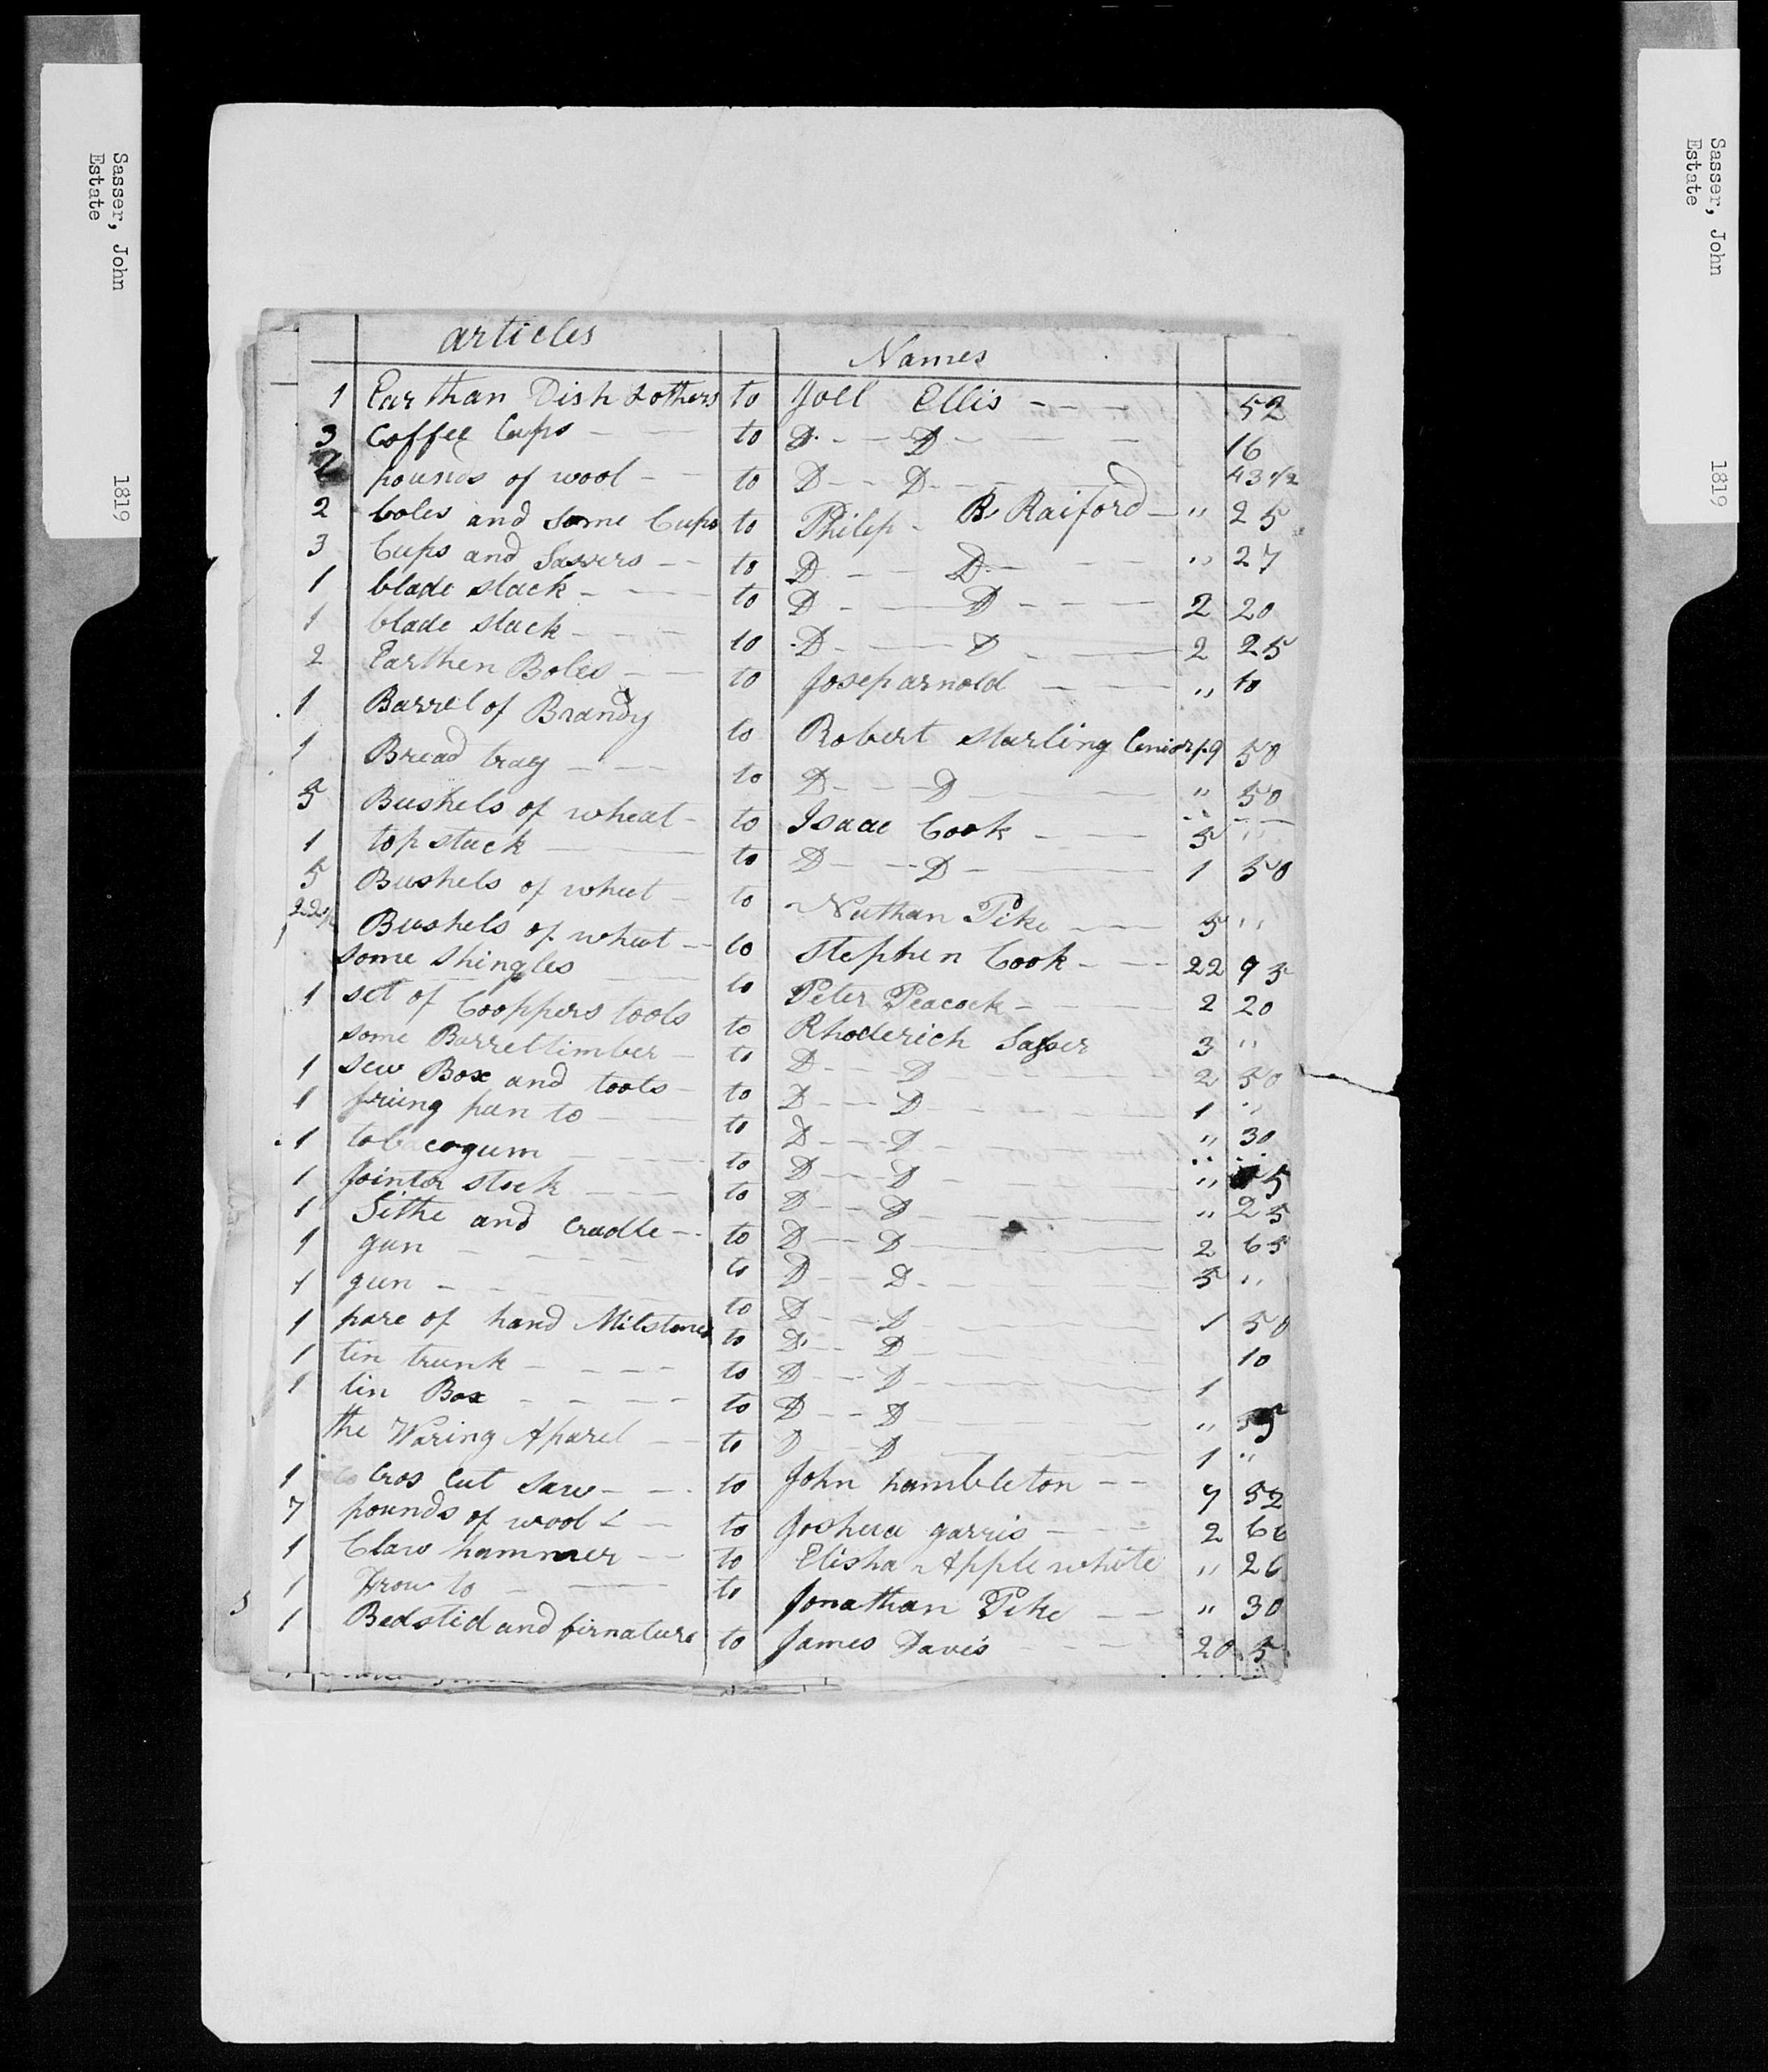 Sasser, John
Estate
1819
Sasser, John
Estate
1819
articles Names
1 Earthan Dish & others to Joel Ellis 52
3 Coffee Cups to D D 16
2 pounds of wool to D D 43 1/2
2 boles and some Cups to Philip B. Raiford " 25
3 Cups and Sassers to D D " 27
1 blade stack to D D 2 20
1 blade stack to D D 2 25
2 Earthen Boles to Josep arnold " 10
1 Barrel of Brandy to Robert starling Cenior 19 50
1 Bread tray to D D " 50
5 Bushels of wheat to Isaac Cook 5 "
1 top stack to D D 1 50
5 Bushels of wheat to Nathan Pike 5 "
22 1/2 Bushels of wheat to Stephen Cook 22 95
some shingles to Peter Peacock 2 20
1 set of Cooppers tools to Rhoderich Sasser 3 "
some Barrel timber to D D 2 50
1 sew Box and tools to D D 1 "
1 friing pan to to D D " 30
1 tobaccogum to D D " 5
1 Jointer stock to D D " 25
1 Sithe and cradle to D D 2 65
1 gun to D D 5 "
1 gun to D D 1 50
1 pare of hand Milstones to D D 10
1 tin trunk to D D 1
1 tin Box to D D "
the Waring Aparel to D D 1 "
1 Cros Cut Saw to John hambleton 7 52
7 pounds of wool to Joshua garris 2 66
1 Claw hammer to Elisha Applewhite " 26
1 Frow to to Jonathan Pike " 30
1 Bedstid and firnature to James Davis 20 5